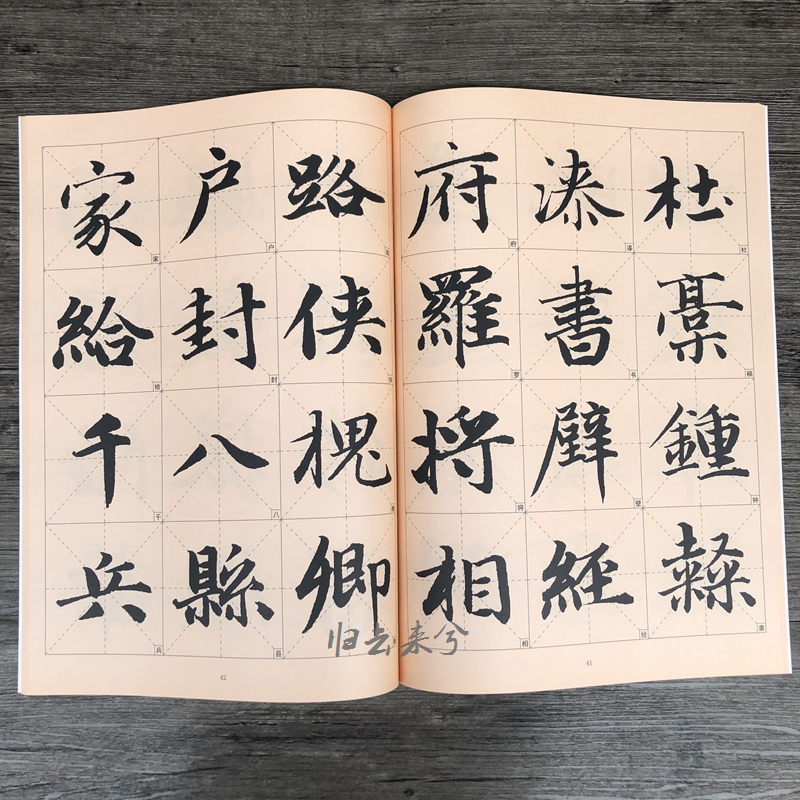 杜稾鍾隸
杜
钟
隶
漆書壁經
漆
书
壁
经
府羅將相
府
罗
将
相
41
路俠槐卿
户封八縣
户
封
八
县
家給千兵
家
给
千
兵
42
归去来兮